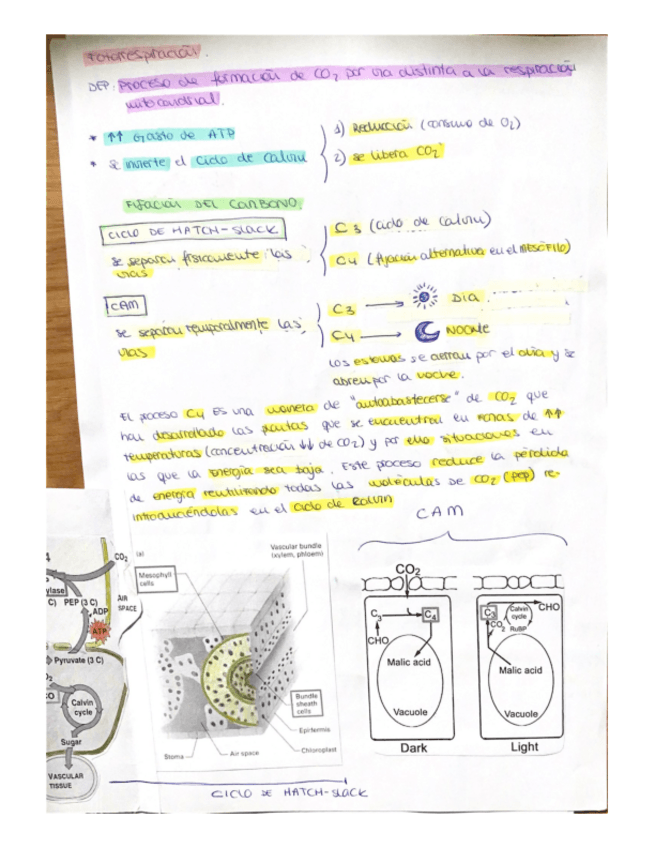 Fotorrespiración.
DEF: Proceso de formación de CO2 por vía distinta a la respiración
mitocondrial.
* ↑↑ Gasto de ATP
* se invierte el Ciclo de Calvin
1) Reducción (consumo de O2)
2) se libera CO2
FIJACIÓN DEL CARBONO.
CICLO DE HATCH-SLACK
se separan físicamente las
vías
C3 (ciclo de Calvin)
C4 (fijación alternativa en el MESÓFILO)
CAM
se separan temporalmente las
vías
C3 → DIA
C4 → NOCHE
Los estomas se cierran por el día y se
abren por la noche.
El proceso C4 es una manera de "autoabastecerse" de CO2 que
han desarrollado las plantas que se encuentran en zonas de ↑↑
temperaturas (concentración ↓↓ de CO2) y por ello situaciones en
las que la energía sea baja. Este proceso reduce la pérdida
de energía reutilizando todas las moléculas de CO2 (pep) re-
introduciéndolas en el ciclo de Calvin
CAM
4
CO2
ylase
C) PEP (3 C)
ADP
AIR
SPACE
ATP
Pyruvate (3 C)
O2
CO
Calvin
cycle
Sugar
VASCULAR
TISSUE
(a)
Vascular bundle
(xylem, phloem)
Mesophyll
cells
Bundle
sheath
cells
Epidermis
Chloroplast
Air space
Stoma
CO2
C3
C4
CHO
Malic acid
Vacuole
Dark
C3
Calvin
cycle
CHO
CO2
RuBP
Malic acid
Vacuole
Light
CICLO DE HATCH-SLACK